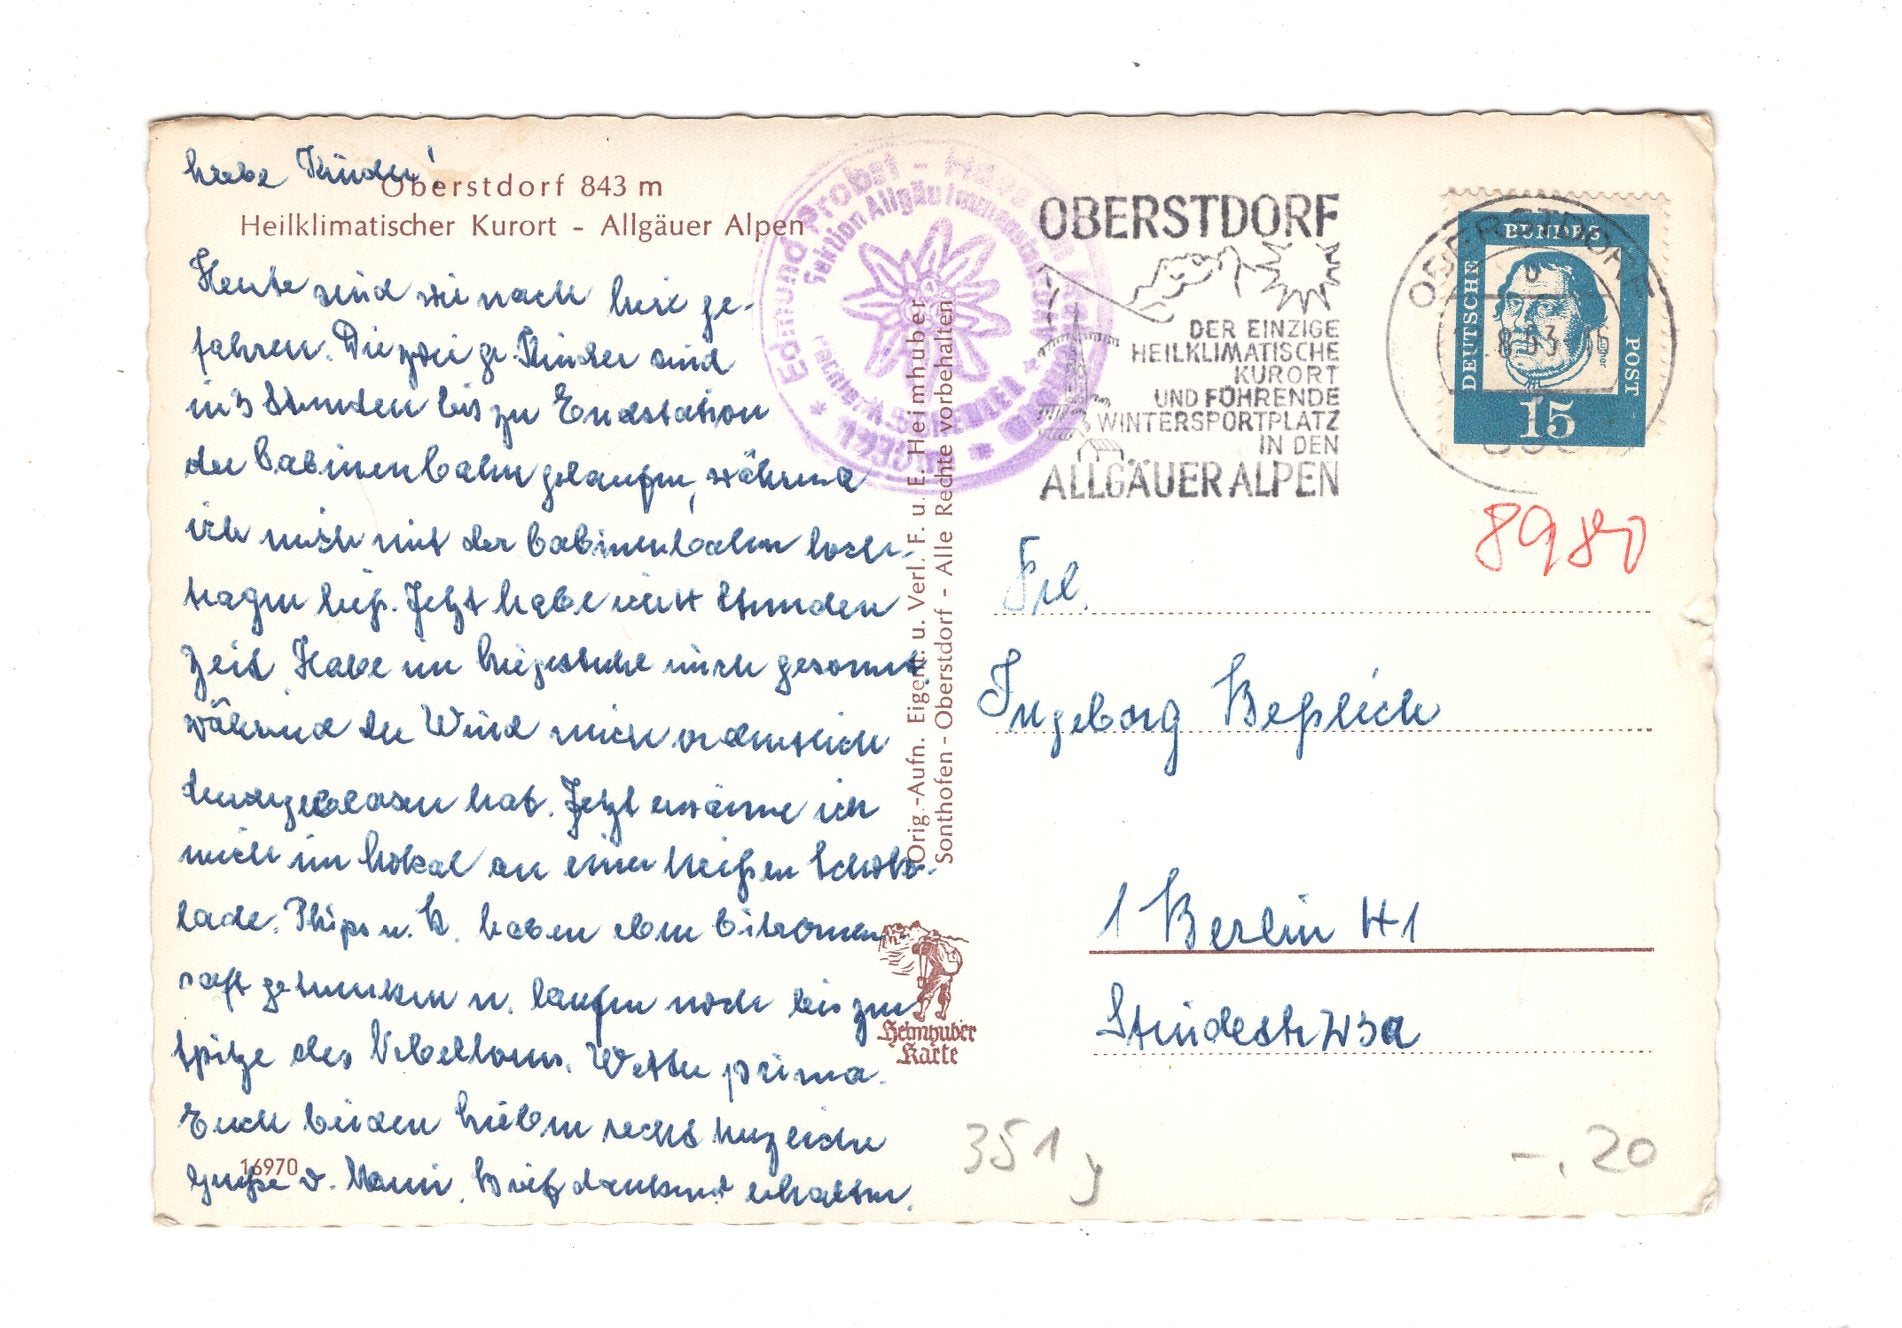 Liebe Kinder!
Oberstdorf 843 m
Heilklimatischer Kurort - Allgäuer Alpen
Heute sind wir nach hier ge-
fahren. Die zwei gr. Kinder sind
in 3 Stunden bis zu Endstation
der Cabinenbahn gelaufen, während
ich mich mit der Cabinenbahn hoch-
tragen ließ. Jetzt habe ich 4 Stunden
Zeit. Habe im Liegestuhl mich gesonnt,
während der Wind mich ordentlich
durchgeblasen hat. Jetzt erwärme ich
mich im Lokal an einer heißen Schoko-
lade. u. K. haben eben Citronen
saft getrunken u. laufen noch bis zur
Spitze des Nebelhorns. Wetter prima.
Euch beiden Lieben recht herzliche
Grüße v. Mami. Brief dankend erhalten.
16970
Edmund Probst - Haus
Sektion Allgäu Immenstadt
Orig.-Aufn. Eigent. u. Verl. F. u. E. Heimhuber
Sonthofen - Oberstdorf - Alle Rechte vorbehalten
Heimhuber
Karte
OBERSTDORF
DER EINZIGE
HEILKLIMATISCHE
KURORT
UND FÜHRENDE
WINTERSPORTPLATZ
IN DEN
ALLGÄUER ALPEN
OBERSTDORF
8.63
DEUTSCHE
BUNDES
POST
15
8980
Frl.
Ingeborg Beßlich
1 Berlin 41
Stindestr 23a
351 y
-.20